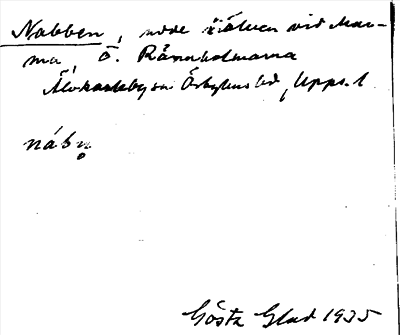 Nabben, nere i älven vid Mar-
ma, ö. Rånnholmarna
Älvkarleby sn Örbyhus hd, Upps. l
nábn̥
Gösta Glad 1935